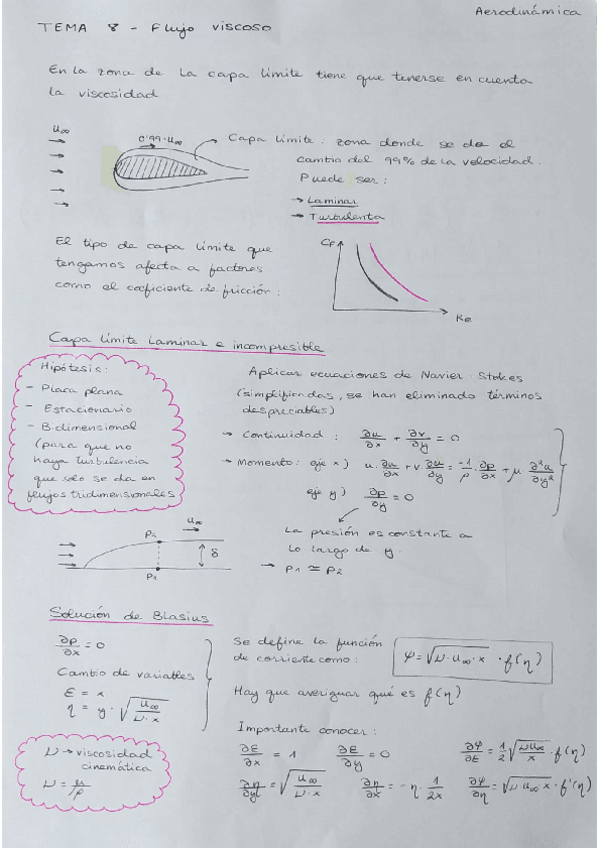 Aerodinámica
TEMA 8 - Flujo viscoso
En la zona de la capa límite tiene que tenerse en cuenta
la viscosidad
u∞
0'99·u∞
Capa límite: zona donde se da el
cambio del 99% de la velocidad.
Puede ser:
→ Laminar
→ Turbulenta
El tipo de capa límite que
tengamos afecta a factores
como el coeficiente de fricción:
CF
Re
Capa límite laminar e incompresible
Hipótesis:
- Placa plana
- Estacionario
- Bidimensional
(para que no
haya turbulencia
que solo se da en
flujos tridimensionales
Aplicar ecuaciones de Navier-Stokes
(simplificadas, se han eliminado términos
despreciables)
→ Continuidad: ∂u/∂x + ∂v/∂y = 0
→ Momento: eje x) u·∂u/∂x + v ∂u/∂y = -1/ρ · ∂p/∂x + μ ∂²u/∂y²
eje y) ∂p/∂y = 0
La presión es constante a
lo largo de y.
→ P1 ≃ P2
u∞
P2
δ
P1
Solución de Blasius
∂p/∂x = 0
Cambio de variables
ε = x
η = y·√(u∞/(ν·x))
ν → viscosidad
cinemática
ν = μ/ρ
Se define la función
de corriente como: Ψ = √(ν·u∞·x) · f(η)
Hay que averiguar qué es f(η)
Importante conocer:
∂ε/∂x = 1 ∂ε/∂y = 0 ∂Ψ/∂ε = 1/2 √(νu∞/x) · f(η)
∂η/∂y = √(u∞/(ν·x)) ∂η/∂x = -η · 1/2x ∂Ψ/∂η = √(ν u∞ x) · f'(η)